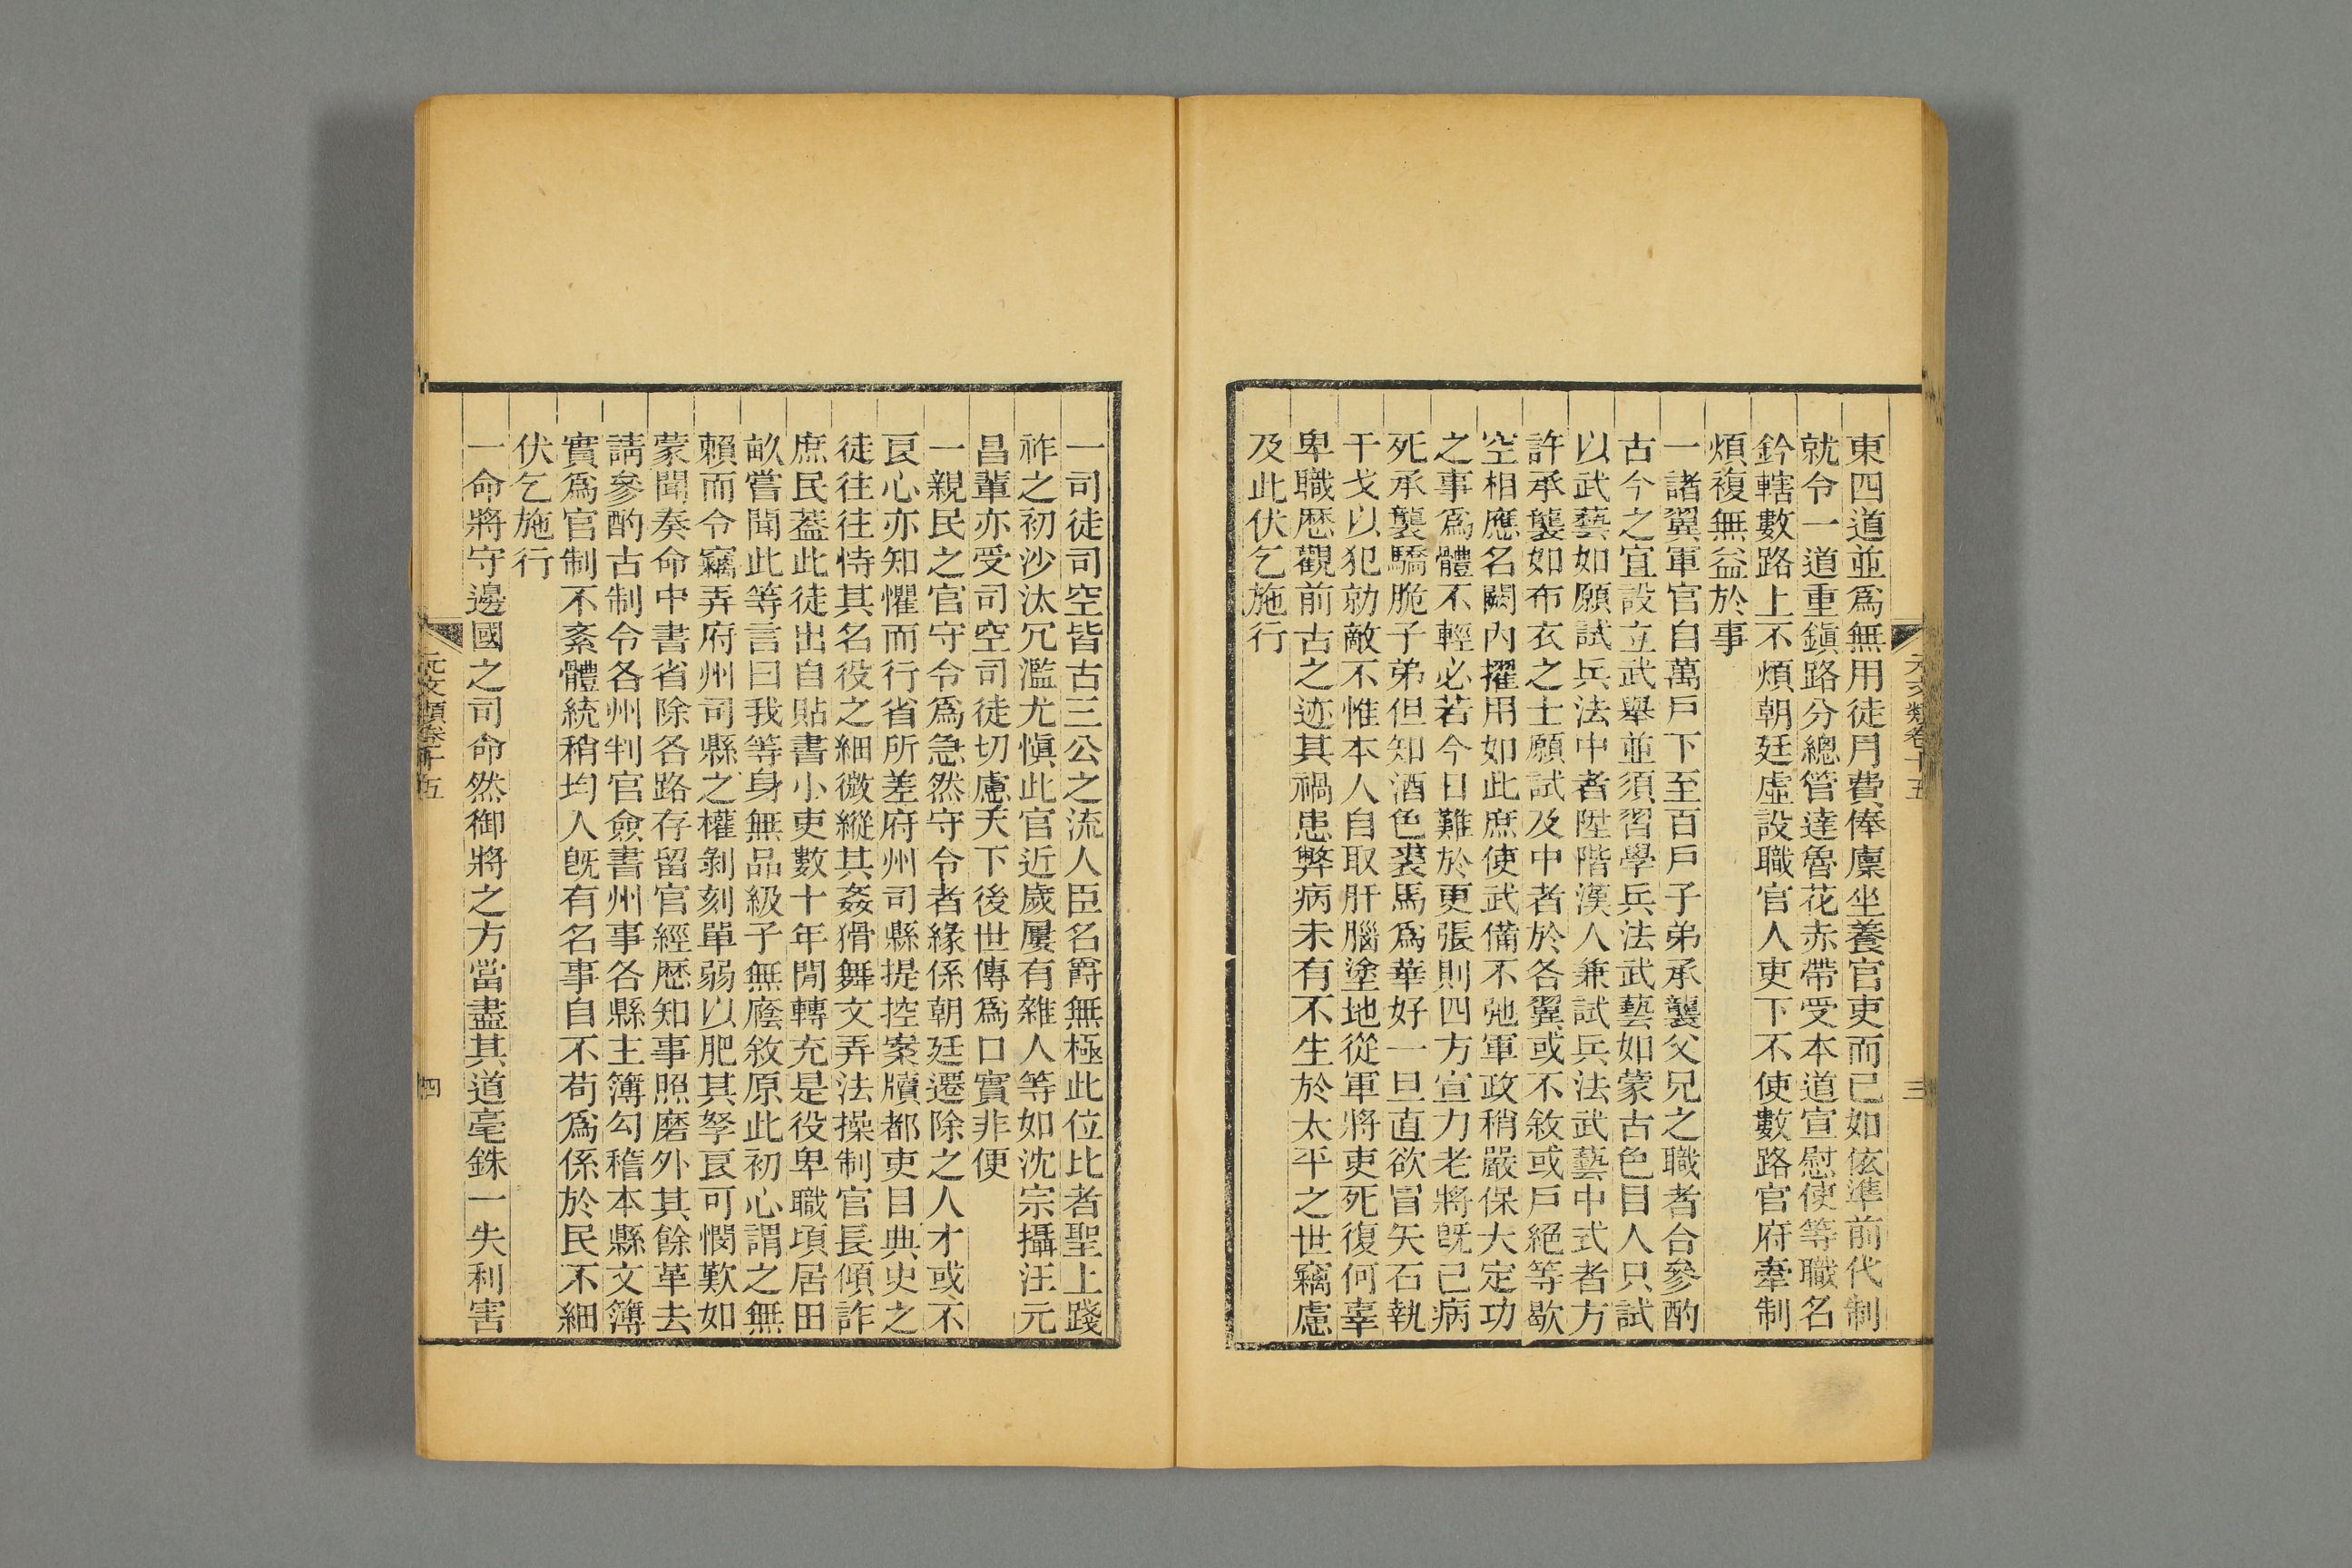 東四道並爲無用徒月費俸廩坐養官吏而已如依準前代制
就令一道重鎭路分總管達魯花赤帶受本道宣慰使等職名
鈐轄數路上不煩朝廷虛設職官人吏下不使數路官府牽制
煩複無益於事
一諸翼軍官自萬戸下至百戸子弟承襲父兄之職者合參酌
古今之宜設立武舉並須習學兵法武藝如蒙古色目人只試
以武藝如願試兵法中者陞階漢人兼試兵法武藝中式者方
許承襲如布衣之士願試及中者於各翼或不敘或戸絕等歇
空相應名闕內擢用如此庶使武備不弛軍政稍嚴保大定功
之事爲體不輕必若今日難於更張則四方宣力老將旣已病
死承襲驕脆子弟但知酒色裘馬爲華好一旦直欲冒矢石執
干戈以犯勍敵不惟本人自取肝腦塗地從軍將吏死復何辜
卑職歷觀前古之迹其禍患弊病未有不生於太平之世竊慮
及此伏乞施行
元文類卷十五
三
一司徒司空皆古三公之流人臣名爵無極此位比者聖上踐
祚之初沙汰冗濫尤愼此官近歲屢有雜人等如沈宗攝汪元
昌輩亦受司空司徒切慮天下後世傳爲口實非便
一親民之官守令爲急然守令者緣係朝廷遷除之人才或不
良心亦知懼而行省所差府州司縣提控案牘都吏目典史之
徒往往恃其名役之細微縱其姦猾舞文弄法操制官長傾詐
庶民葢此徒出自貼書小吏數十年閒轉充是役卑職頃居田
畝嘗聞此等言曰我等身無品級子無廕敘原此初心謂之無
賴而令竊弄府州司縣之權剝刻單弱以肥其拏良可憫歎如
蒙聞奏命中書省除各路存留官經歷知事照磨外其餘革去
請參酌古制令各州判官僉書州事各縣主簿勾稽本縣文簿
實爲官制不紊體統稍均人旣有名事自不苟爲係於民不細
伏乞施行
一命將守邊國之司命然御將之方當盡其道毫銖一失利害
元文類卷十五
四